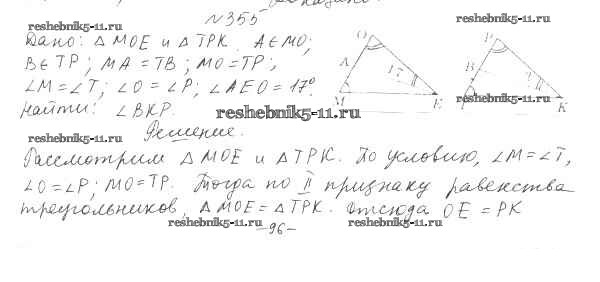 №355
reshebnik5-11.ru
reshebnik5-11.ru
Дано: △ MOE и △ TPK. A∈MO;
B∈TP; MA = TB; MO=TP;
∠M=∠T; ∠O=∠P; ∠AEO=17°.
Найти: ∠BKP.
O
A
17°
M
E
P
B
K
reshebnik5-11.ru
reshebnik5-11.ru
Решение.
Рассмотрим △ MOE и △ TPK. По условию, ∠M=∠T,
∠O=∠P; MO=TP. Тогда по II признаку равенства
треугольников, △ MOE = △ TPK. Отсюда OE = PK
reshebnik5-11.ru
reshebnik5-11.ru
-96-